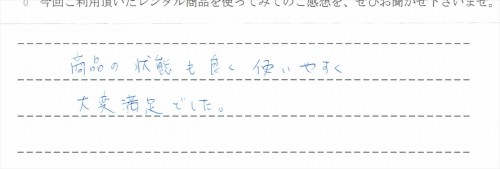 ○ 今回ご利用頂いたレンタル商品を使ってみてのご感想を、ぜひお聞かせ下さいませ。
商品の状態も良く使いやすく
大変満足でした。